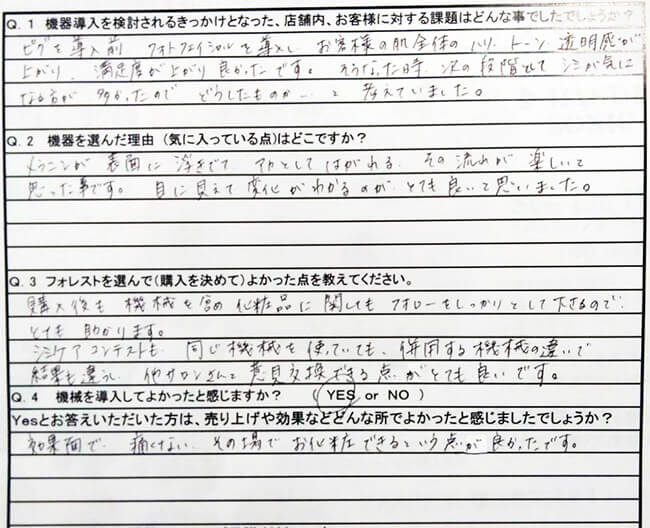 Q. 1 機器導入を検討されるきっかけとなった、店舗内、お客様に対する課題はどんな事でしたでしょうか？
ピグを導入前 フォトフェイシャルを導入し お客様の肌全体の ハリ、トーン、透明感が
上がり、満足度が上がり良かったです。そうなった時、次の段階として シミが気に
なる方が 多かったので どうしたものか…と 考えていました。
Q. 2 機器を選んだ理由（気に入っている点）はどこですか？
メラニンが 表面に 浮きでて アカとして はがれる、その 流れが 楽しいと
思った事です。 目に見えて 変化が わかるのが、とても 良いと 思いました。
Q. 3 フォレストを選んで（購入を決めて）よかった点を教えてください。
購入後も 機械を含め 化粧品に 関しても フォローをしっかりとして下さるので、
とても 助かります。
シミケア コンテストも 同じ機械を 使っていても、併用する機械の違いで
結果も違うし、他サロンさんと 意見交換できる点 がとても 良いです。
Q. 4 機械を導入してよかったと感じますか？ （ YES or NO ）
Yesとお答えいただいた方は、売り上げや効果などどんな所でよかったと感じましたでしょうか？
効果面で、痛くない、その場で お化粧できるという点が 良かったです。